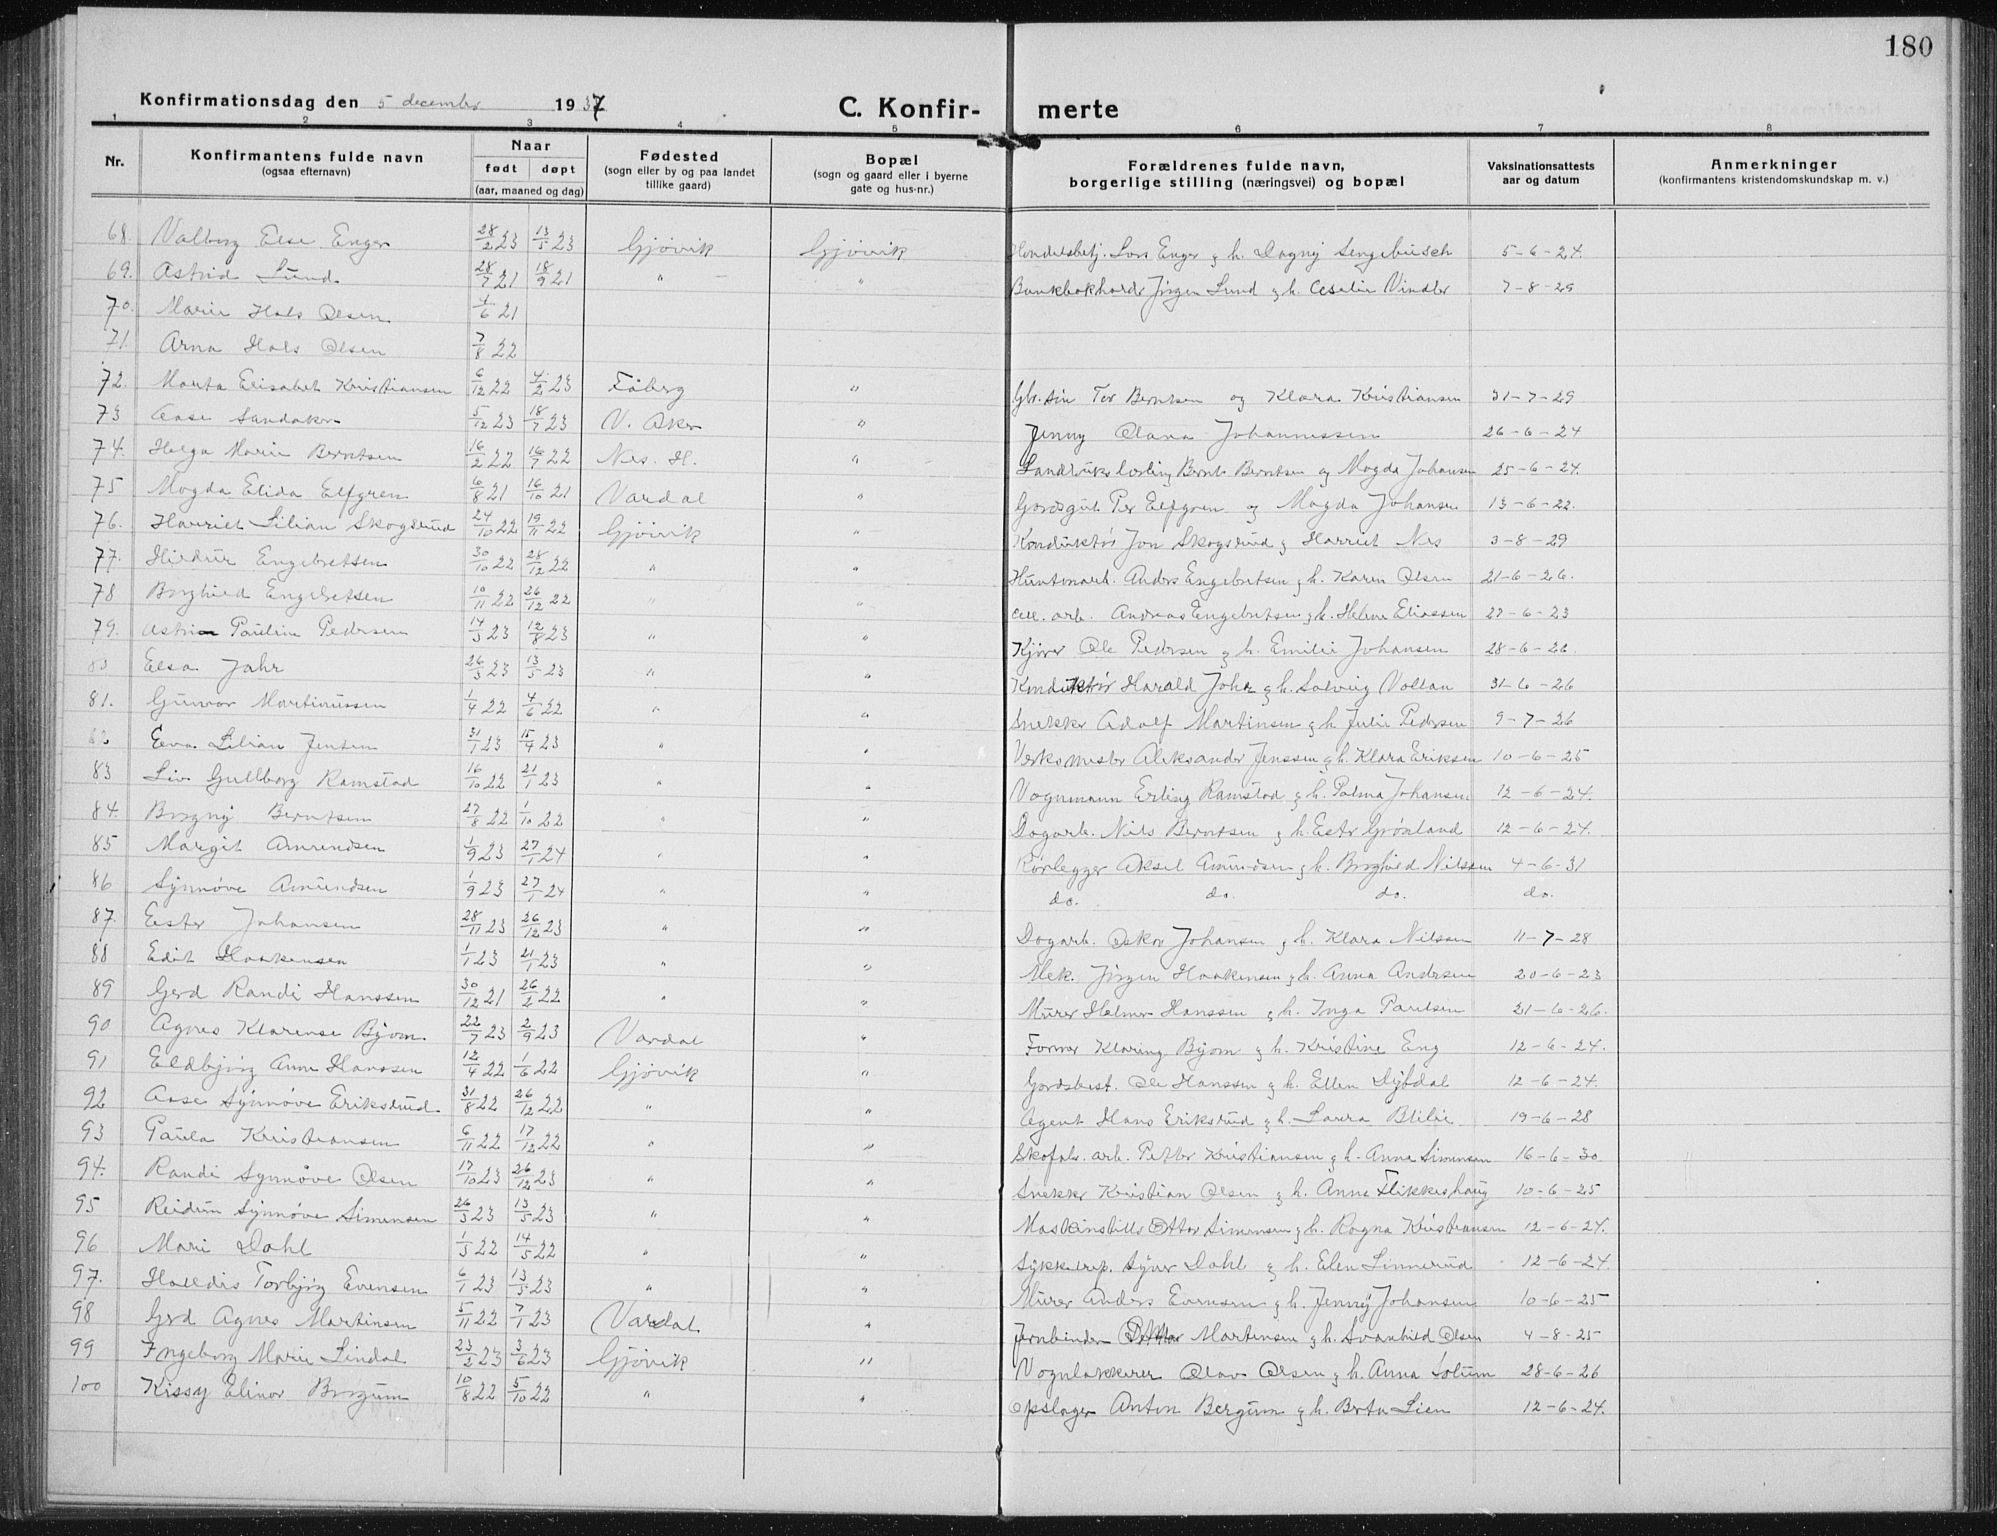 180
Konfirmationsdag den 5 december 1937
C. Konfir- merte
1 2 3 4 5 6 7 8
Nr. Konfirmantens fulde navn (ogsaa efternavn) Naar født døpt (aar, maaned og dag) Fødested (sogn eller by og paa landet tillike gaard) Bopæl (sogn og gaard eller i byerne gate og hus-nr.) Forældrenes fulde navn, borgerlige stilling (næringsvei) og bopæl Vaksinationsattests aar og datum Anmerkninger (konfirmantens kristendomskundskap m. v.)
68. Valborg Else Enger 28/2 23 13/5 23 Gjøvik Gjøvik Handelsbetj. Lars Enger g. h. Dagny Sengebusch 5-6-24.
69. Astrid Lund 28/7 21 18/9 21 " " Bankbokholder Jørgen Lund g. h. Cecelie Vindler 7-8-29
70. Marie Hals Olsen 4/6 21
71. Arna Hals Olsen 7/8 22
72. Marta Elisabet Kristiansen 6/12 22 4/2 23 Faaberg " Tor Berntsen og Klara Kristiansen 31-7-29
73 Aase Sandaker 5/12 23 18/7 23 V. Aker " Jenny Olava Johannessen 26-6-24
74. Helga Marie Berntsen 16/2 22 16/7 22 Nes. H. " Bernt Berntsen og Magda Johansen 25-6-24.
75 Magda Elida Elfgren 6/8 21 16/10 21 Vardal " Gardsgut Per Elfgren og Magda Johansen 13-6-22.
76. Harriet Lilian Skogsrud 24/10 22 19/11 22 Gjøvik " Konduktør Jon Skogsrud g Harriet Nes 3-8-29
77. Hildur Engebretsen 30/10 22 28/12 22 " " Huntonarb. Anders Engebretsen g. h. Karen Olsen 21-6-26.
78 Borghild Engebretsen 10/11 22 26/12 22 " " cell. arb. Andreas Engebretsen g. h. Helene Eliassen 27-6-23
79. Astrid Pauline Pedersen 14/3 23 12/8 23 " " Kjører Ole Pedersen g. h. Emilie Johansen 28-6-26.
80 Elsa Jahr 26/3 23 13/5 23 " " Konduktør Harald Jahr g. h. Solveig Vollan 31-6-26
81. Gunvor Martinussen 1/4 22 4/6 22 " " Snekker Adolf Martinsen g. h. Julie Pedersen 9-7-26
82 Eva Lilian Jensen 31/1 23 15/4 23 " " Verksmester Aleksander Jenssen g. h. Klara Eriksen 10-6-25
83 Liv Gullborg Ramstad 16/10 22 21/1 23 " " Vognmann Erling Ramstad g. h. Palma Johansen 12-6-24.
84. Borgny Berntsen 27/8 22 1/10 22 " " Dagarb. Nils Berntsen g. h. Ester Grønland 12-6-24.
85 Margit Amundsen 1/9 23 27/1 24 " " Rørlegger Aksel Amundsen g. h. Borghild Nilssen 4-6-31
86 Synnøve Amundsen 1/9 23 27/1 24 " " do. do. do. do.
87. Ester Johansen 28/11 23 26/12 23 " " Dagarb. Oskar Johansen g. h. Klara Nilssen 11-7-28
88 Edit Haakensen 1/1 23 21/1 23 " " Mek. Jørgen Haakensen g. h. Anna Andersen 20-6-23
89 Gerd Randi Hanssen 30/12 21 26/2 22 " " Murer Helmer Hanssen g. h. Inga Paulsen 21-6-26.
90 Agnes Klarense Bjørn 22/7 23 2/9 23 Vardal " Klaring Bjørn g. h. Kristine Eng 12-6-24.
91 Eldbjørg Anne Hanssen 12/4 22 1/6 22 Gjøvik " Gardsbest. Ole Hanssen g. h. Ellen Dybdal 12-6-24.
92 Aase Synnøve Eriksrud 31/8 22 26/12 22 " " Agent Hans Eriksrud g. h. Laura Blilie 19-6-28
93 Paula Kristiansen 6/11 22 17/12 22 " " Skofab. arb. Petter Kristiansen g. h. Anna Simensen 16-6-30
94. Randi Synnøve Olsen 17/10 23 26/12 23 " " Snekker Kristian Olsen g. h. Anna Flikkeshaug 10-6-25
95 Reidun Synnøve Simensen 26/3 23 13/5 23 " " Maskinstiller Ottar Simensen g. h. Ragna Kristiansen 12-6-24.
96 Mari Dahl 1/3 22 14/5 22 " " Sykkelrep. Syver Dahl g. h. Elen Linnerud 12-6-24.
97. Halldis Torbjørg Evensen 6/1 23 13/5 23 " " Murer Anders Evensen g. h. Jenny Johansen 10-6-25
98 Gerd Agnes Martinsen 5/11 22 7/1 23 Vardal " Jernbinder Martinsen g. h. Svanhild Olsen 4-8-25
99 Ingeborg Marie Lindal 23/2 23 3/6 23 Gjøvik " Vognlakkerer Olav Olsen g. h. Anna Solum 28-6-26
100 Kissy Elinor Borgum 10/8 22 5/10 22 " " Opslager Anton Bergum g. h. Berta Lien 12-6-24.